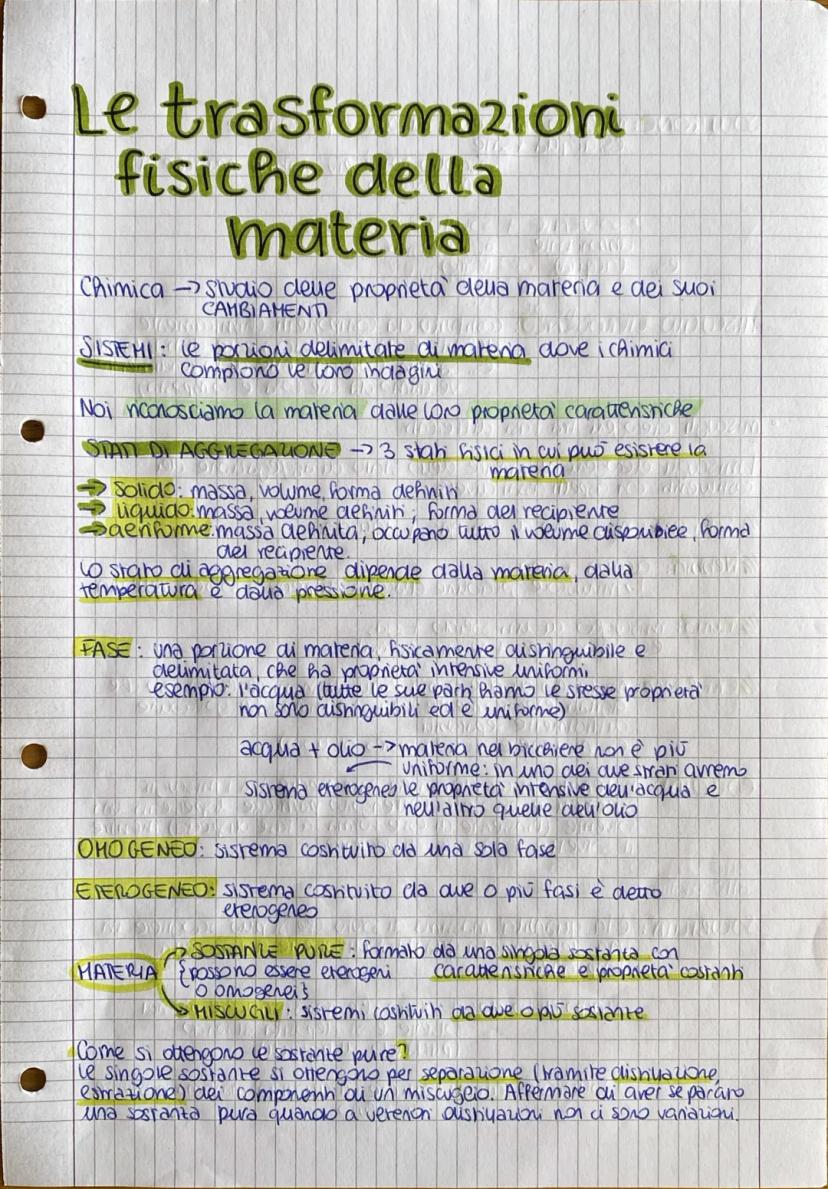 Le trasformazioni
fisiche della
materia
Chimica → studio delle proprietà della materia e dei suoi
CAMBIAMENTI
SISTEMI: le porzioni delimitate di materia dove i chimici
compiono le loro indagini
Noi riconosciamo la materia dalle loro proprietà caratteristiche
STATI DI AGGREGAZIONE → 3 stati fisici in cui può esistere la
materia
→ Solido: massa, volume, forma definiti
→ liquido: massa, volume definiti; forma del recipiente
→ aeriforme: massa definita; occupano tutto il volume disponibile, forma
del recipiente.
Lo stato di aggregazione dipende dalla materia, dalla
temperatura e dalla pressione.
FASE: una porzione di materia, fisicamente distinguibile e
delimitata, che ha proprietà intensive uniformi
esempio: l'acqua (tutte le sue parti hanno le stesse proprietà
non sono distinguibili ed è uniforme)
acqua + olio → materia nel bicchiere non è più
uniforme: in uno dei due strati avremo
sistema eterogeneo le proprietà intensive dell'acqua e
nell'altro quelle dell'olio
OMOGENEO: sistema costituito da una sola fase
ETEROGENEO: sistema costituito da due o più fasi è detto
eterogeneo
SOSTANZE PURE: formato da una singola sostanza con
MATERIA {possono essere eterogeni caratteristiche e proprietà costanti
o omogenei}
MISCUGLI: sistemi costituiti da due o più sostanze
Come si ottengono le sostanze pure?
Le singole sostanze si ottengono per separazione (tramite distillazione,
estrazione) dei componenti di un miscuglio. Affermare di aver separato
una sostanza pura quando a ulteriori distillazioni non ci sono variazioni.